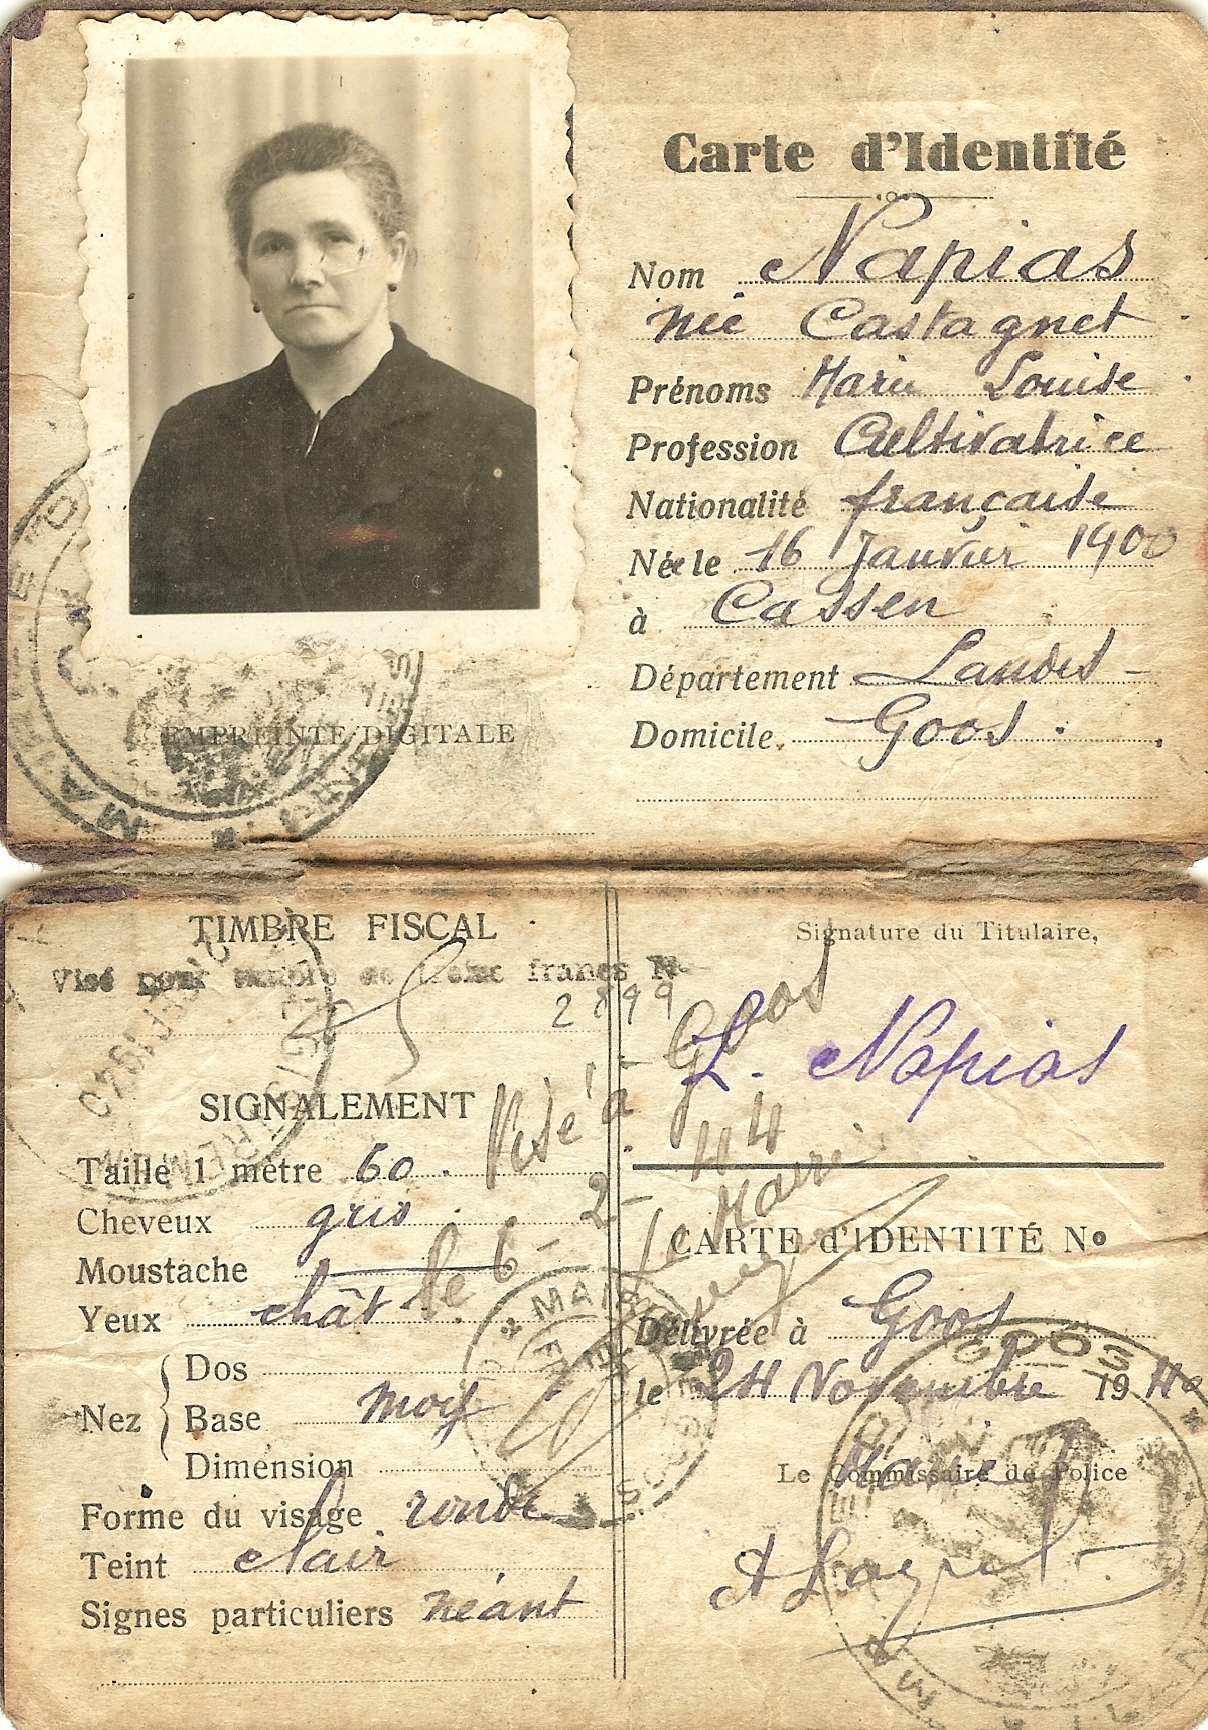 Carte d'Identité
Nom Napias
née Castagnet
Prénoms Marie Louise
Profession Cultivatrice
Nationalité française
Née le 16 Janvier 1900
à Cassen
Département Landes
Domicile Goos
EMPREINTE DIGITALE
TIMBRE FISCAL
Visé pour timbre de francs No
2899
SIGNALEMENT
Taille 1 mètre 60
Cheveux gris
Moustache
Yeux chât
Nez
Dos
Base moy
Dimension
Forme du visage ronde
Teint clair
Signes particuliers néant
Signature du Titulaire,
L. Napias
Visé à Goos
le 6-2-44
Le Maire
CARTE d'IDENTITÉ No
Délivrée à Goos
le 24 Novembre 1940
Le Commissaire de Police
Maire
MAIRIE
GOOS